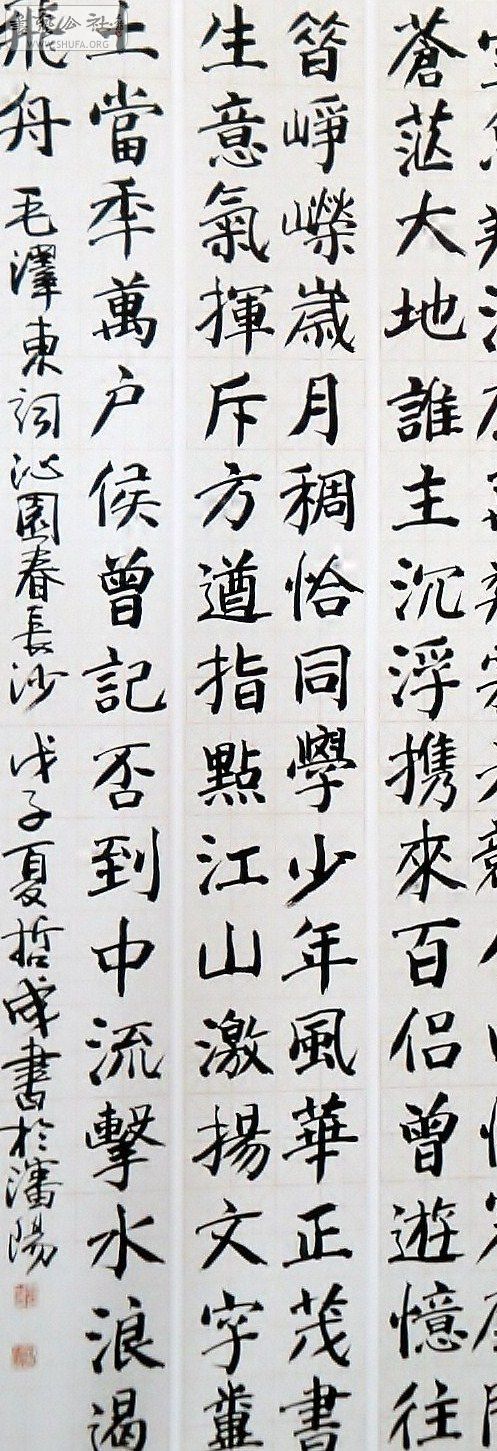 蒼茫大地誰主沉浮携來百侶曾遊憶往
昔崢嶸歲月稠恰同學少年風華正茂書
生意氣揮斥方遒指點江山激揚文字糞
土當秊萬户侯曾記否到中流擊水浪遏
飛舟 毛澤東詞沁園春長沙 戊子夏哲成書於瀋陽
WWW.SHUFA.ORG